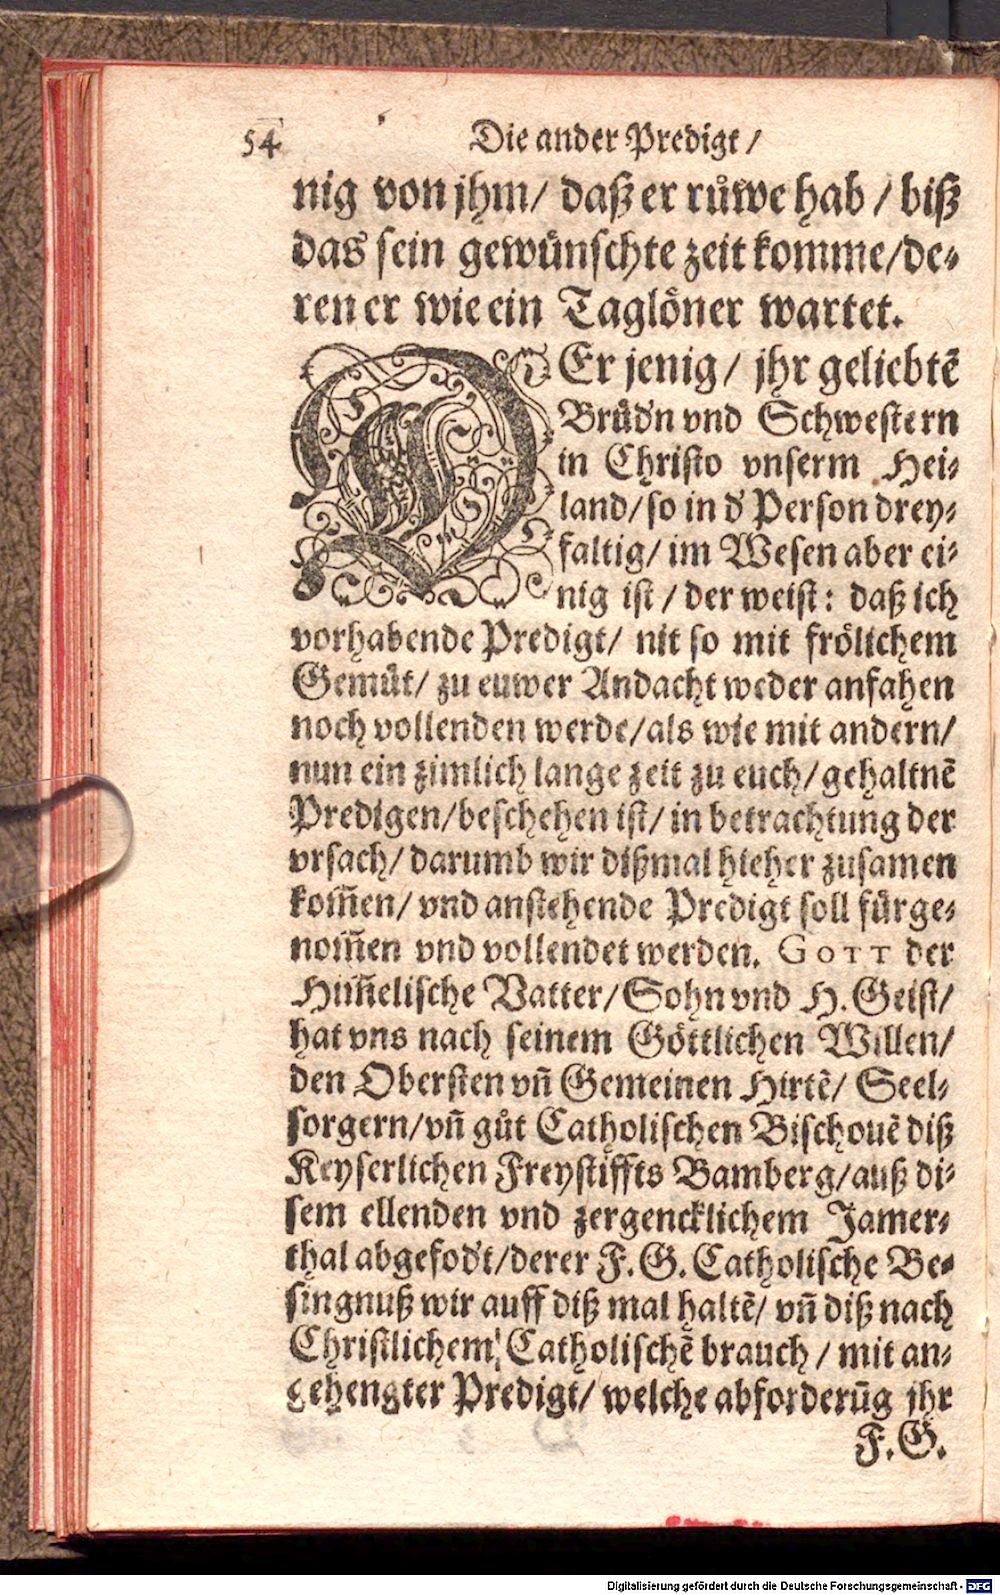 54
Die ander Predigt /
nig von jhm/ daß er růwe hab / biß
das sein gewünschte zeit komme/de⸗
ren er wie ein Taglöner wartet.
DEr jenig/ jhr geliebtẽ
Brůďn vnd Schwestern
in Christo vnserm Hei⸗
land/so in ď Person drey⸗
faltig/ im Wesen aber ei⸗
nig ist / der weist: daß ich
vorhabende Predigt/ nit so mit frölichem
Gemüt/ zu euwer Andacht weder anfahen
noch vollenden werde/als wie mit andern/
nun ein zimlich lange zeit zu euch/gehaltnẽ
Predigen/beschehen ist/ in betrachtung der
vrsach/ darumb wir dißmal hieher zusamen
kom̃en/ vnd anstehende Predigt soll fürge⸗
nom̃en vnd vollendet werden. GOTT der
Him̃elische Vatter/Sohn vnd H. Geist/
hat vns nach seinem Göttlichen Willen/
den Obersten vñ Gemeinen Hirtẽ/ Seel⸗
sorgern/vñ gůt Catholischen Bischouẽ diß
Keyserlichen Freystiffts Bamberg/auß di⸗
sem ellenden vnd zergencklichem Jamer⸗
thal abgefoďt/derer F.G.Catholische Be⸗
singnuß wir auff diß mal haltẽ/ vñ diß nach
Christlichem/ Catholischẽ brauch / mit an⸗
gehengter Predigt/ welche abforderũg jhr
F.G.
Digitalisierung gefördert durch die Deutsche Forschungsgemeinschaft - DFG